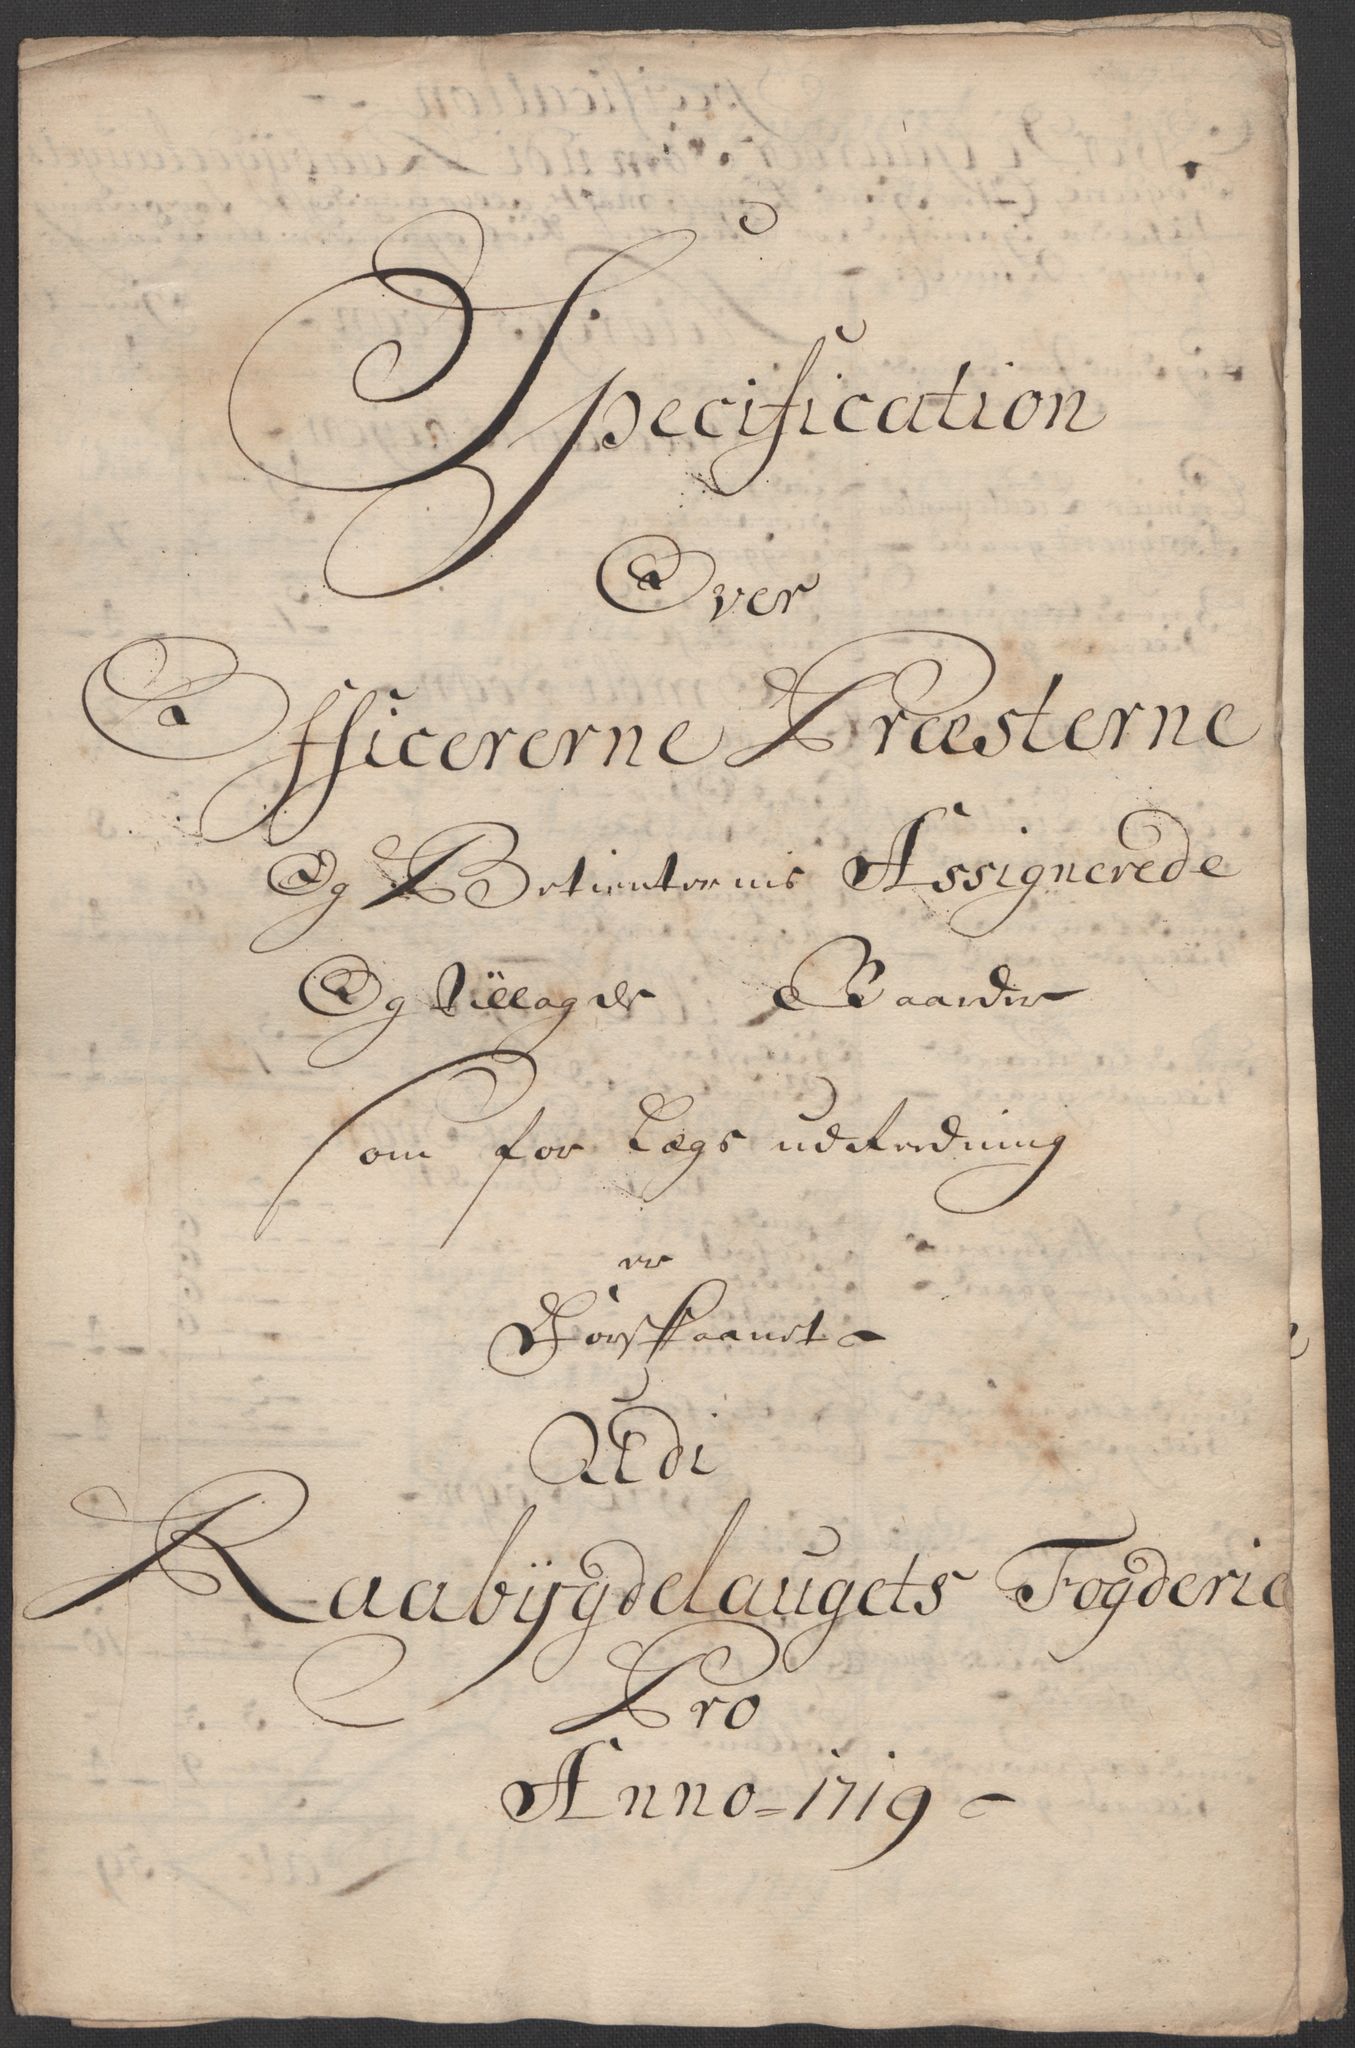 Specification
Over
Officererne Præsterne
Og Betienternis Assignerede
Og tillagde Gaarder
som for Lægs udReedning
er
Forskaanet
Udi
Raabÿgdelaugets Fogderie
Pro
Anno 1719